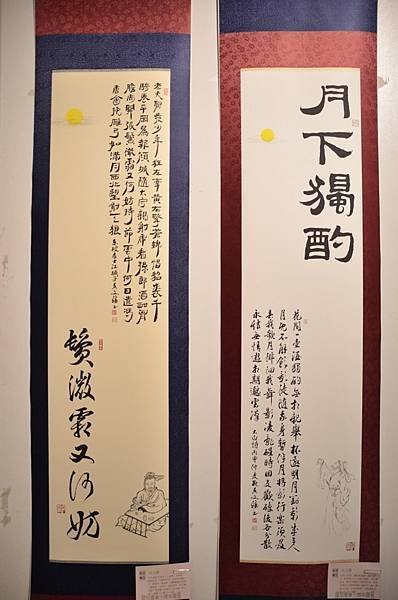 月下獨酌
花間一壺酒獨酌無相親舉杯邀明月對影成三人
月既不解飲影徒隨我身暫伴月將影行樂須及
春我歌月徘徊我舞影凌亂醒時同交歡醉後各分散
永結無情遊相期邈雲漢 太白詩丙申仲夏
老夫聊發少年狂左牽黃右擎蒼錦帽貂裘千
騎卷平岡為報傾城隨太守親射虎看孫郎酒酣胸
膽尚開張鬢微霜又何妨持節雲中何日遣馮
唐會挽雕弓如滿月西北望射天狼 東坡居士江城子
鬢微霜又何妨